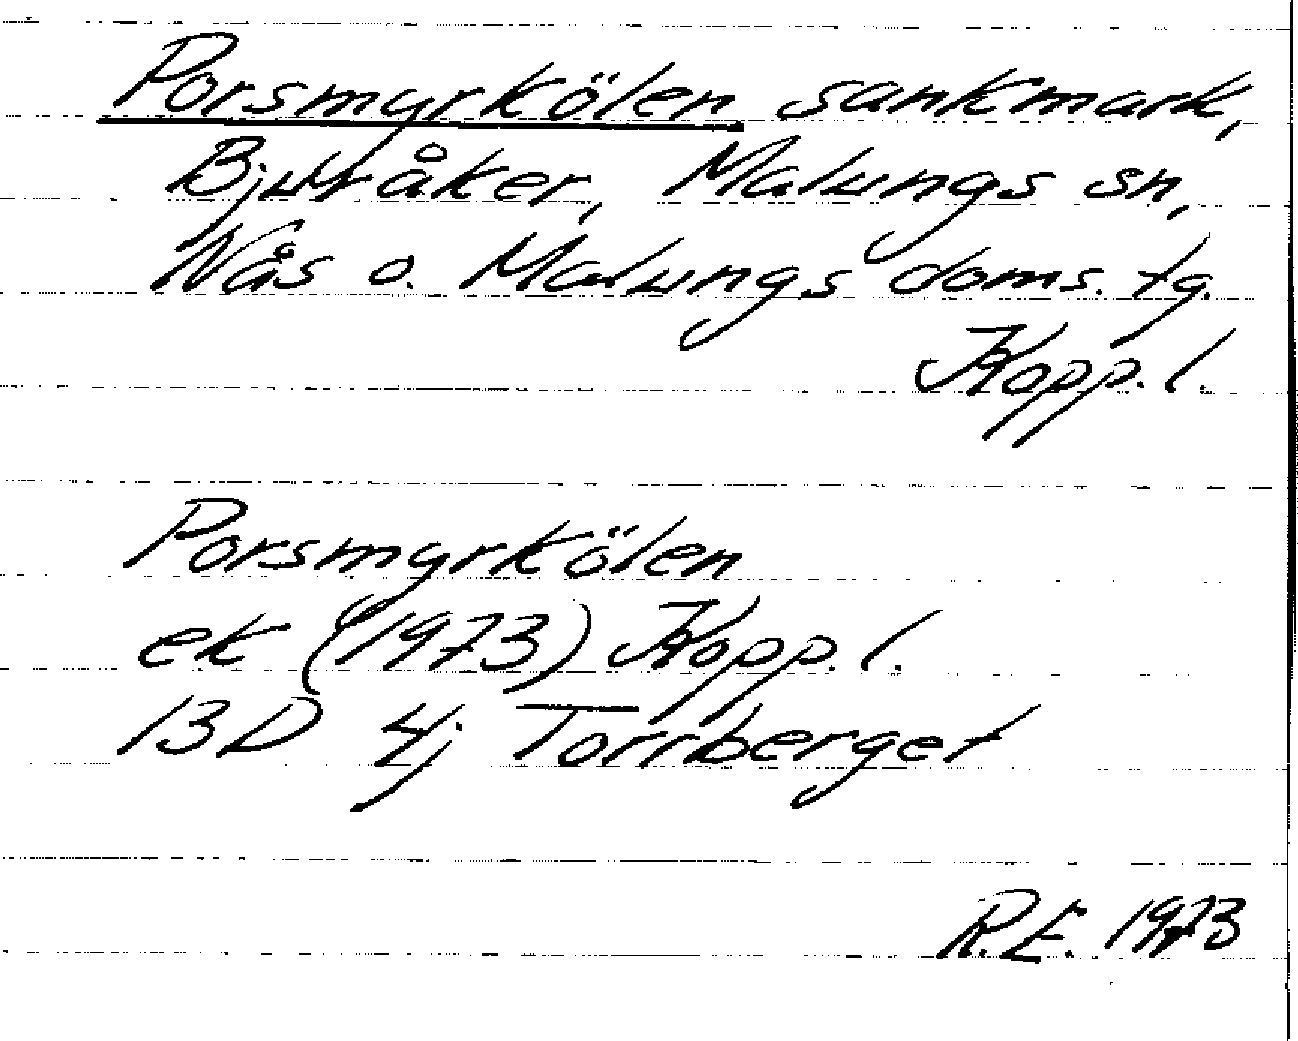 Porsmyrkölen sankmark,
Bjuråker, Malungs sn,
Nås o. Malungs doms. tg.
Kopp. l.
Porsmyrkölen
ek (1973) Kopp. l.
13D 4j Torrberget
R.E. 1973